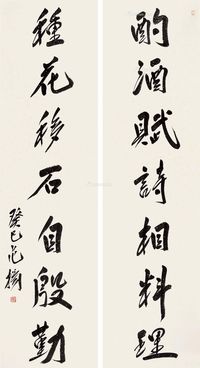 酌酒賦詩相料理
種花移石自殷勤
癸巳范揚